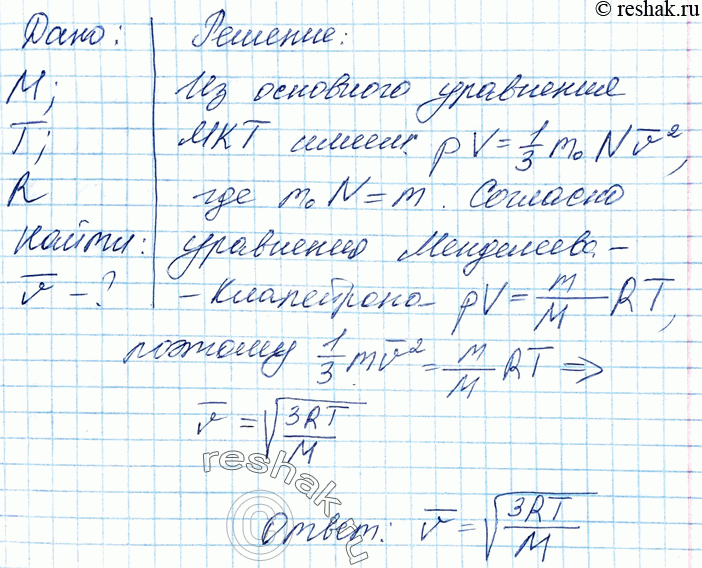 © reshak.ru
Дано: Решение:
M; Из основного уравнения
T; МКТ имеем: pV = 1/3 m₀ N v̅²,
R где m₀ N = m. Согласно
Найти: уравнению Менделеева-
v̅ - ? -Клапейрона pV = m/M RT,
поэтому 1/3 m v̅² = m/M RT ⇒
v̅ = √(3RT/M)
reshak.ru
Ответ: v̅ = √(3RT/M)